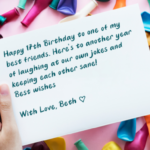 Happy 18th Birthday to one of my
best friends. Here's to another year
of laughing at our own jokes and
keeping each other sane!
Best wishes
With Love, Beth ♡